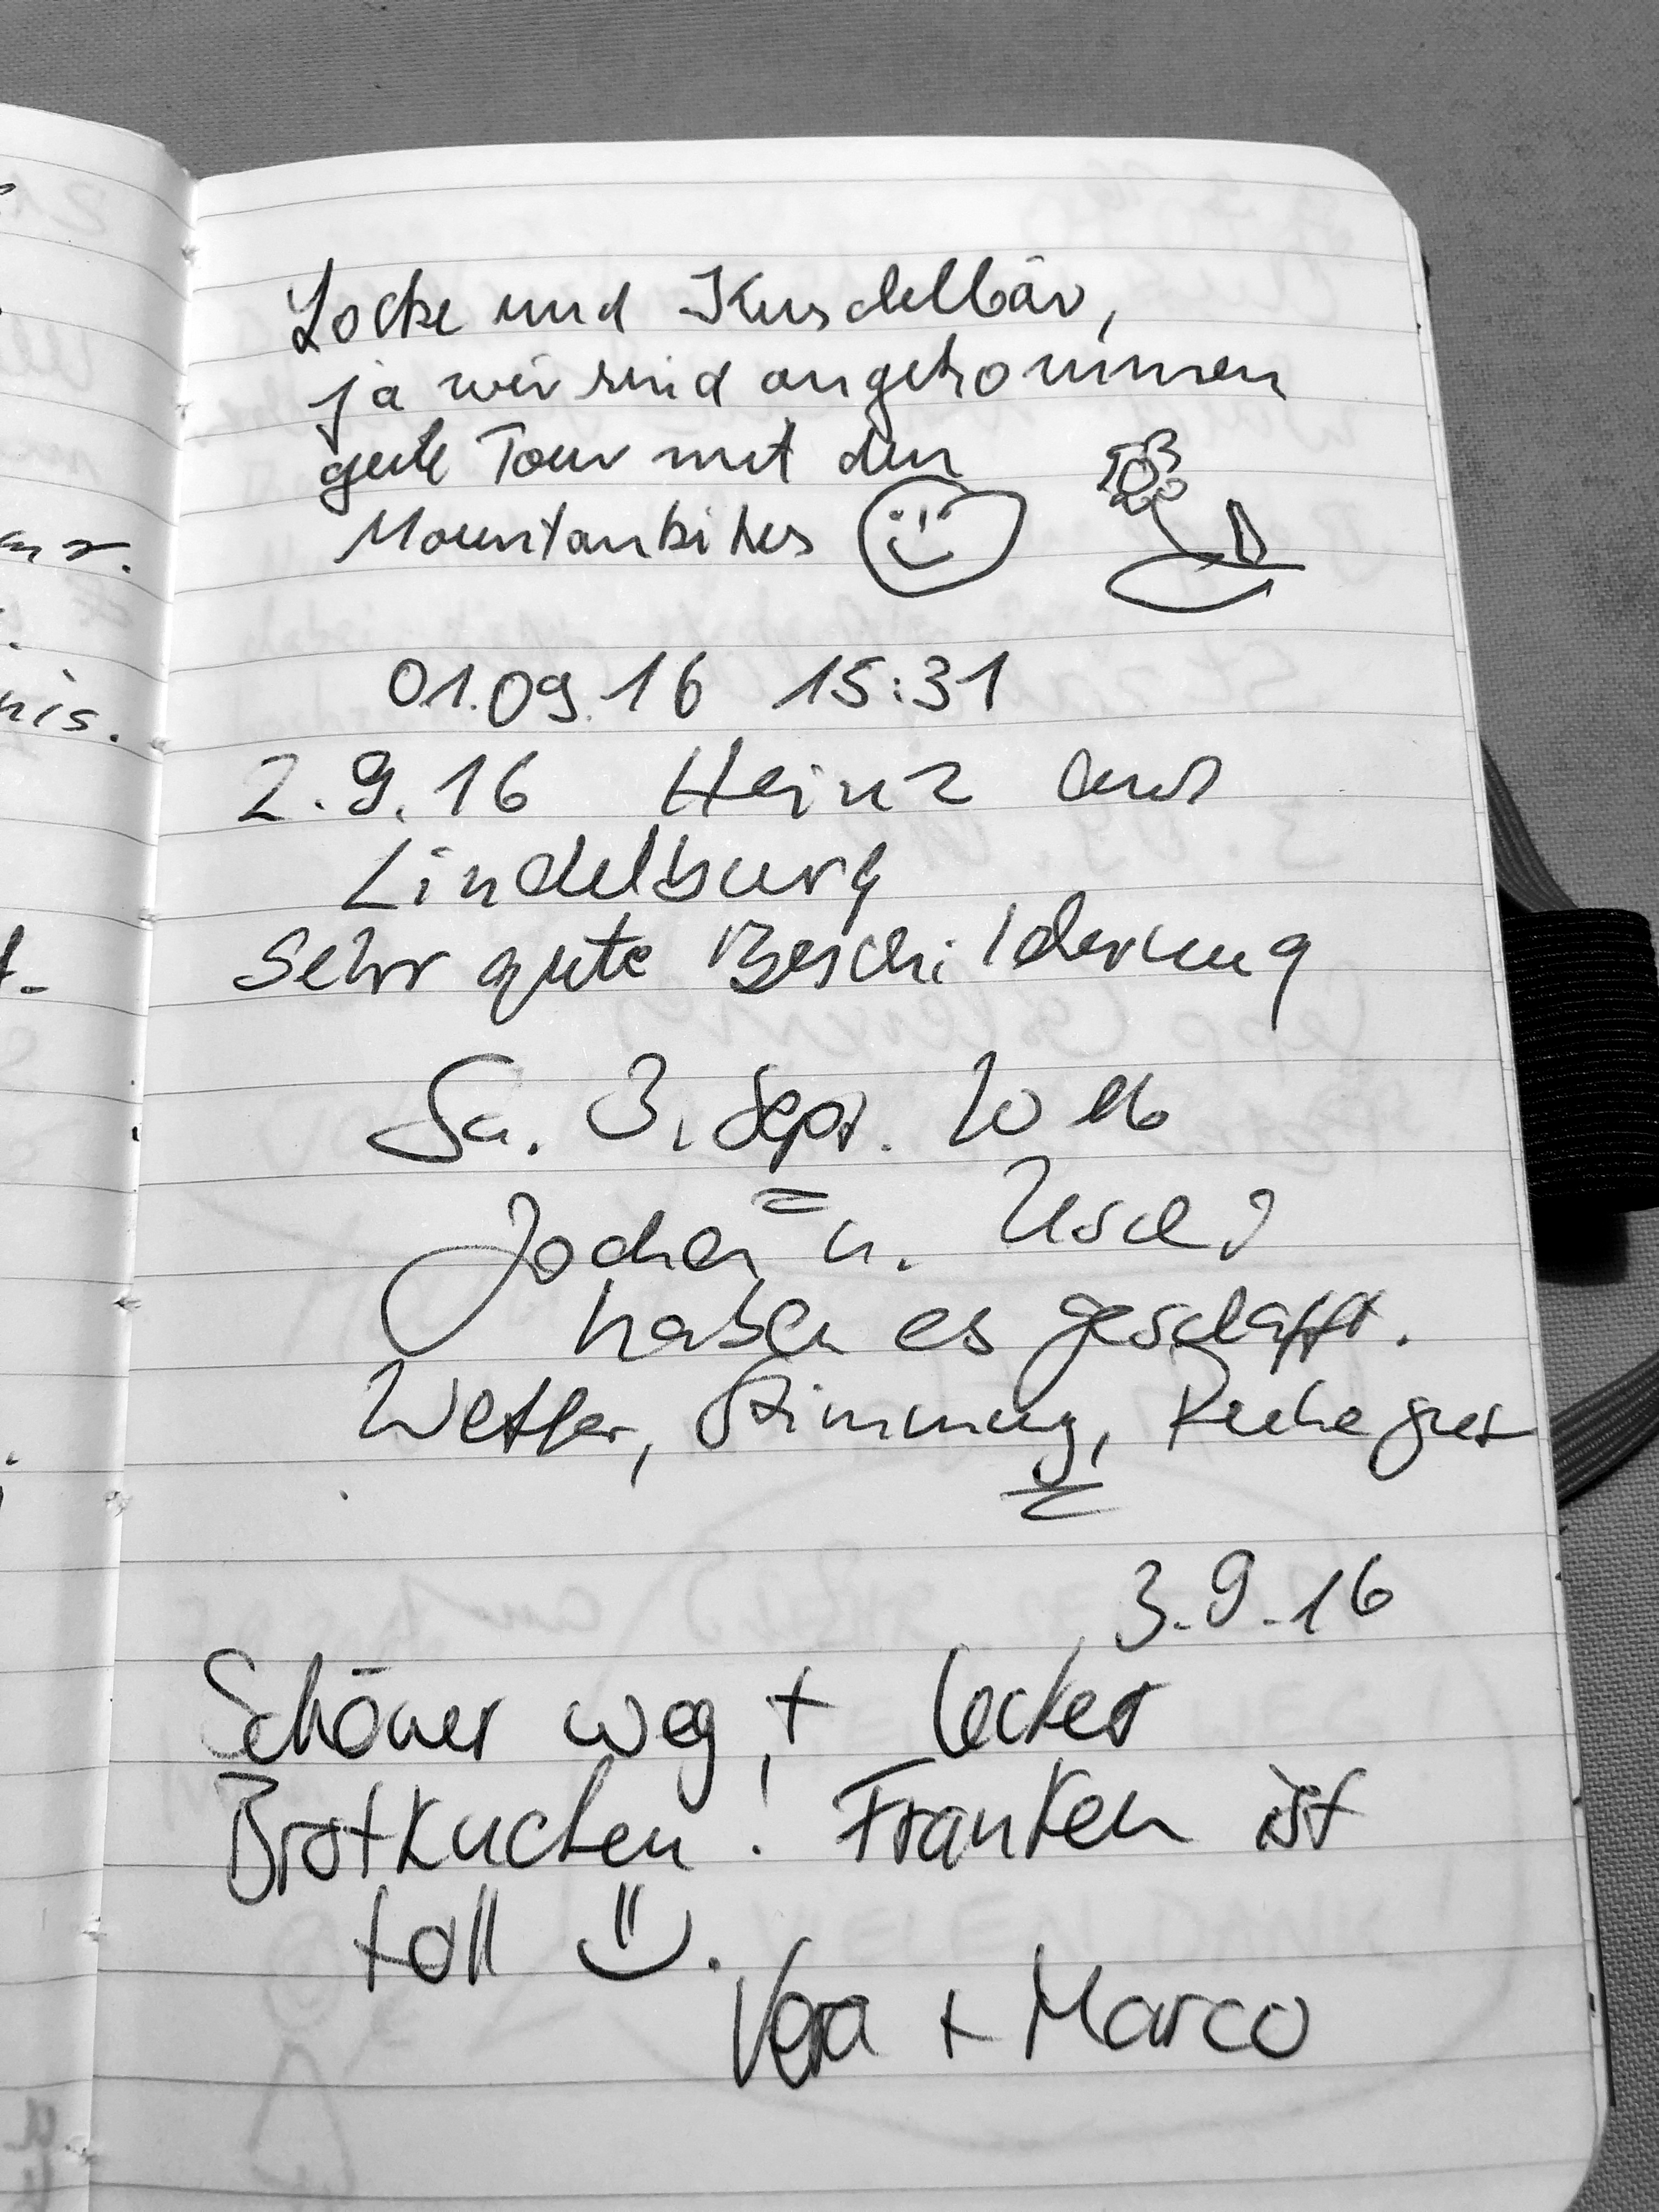 Locke und Kuschelbär,
ja wir sind angekommen
gute Tour mit den
Mountanbikes
01.09.16 15:31
2.9.16 Heinz aus
Lindelburg
Sehr gute Beschilderung
Sa. 3. Sept. 2016
Jochen u.
haben es geschafft.
Wetter, Stimmung, Ruhe gut
3.9.16
Schöner weg + lecker
Brotkuchen! Franken ist
toll
Vera + Marco
nis.